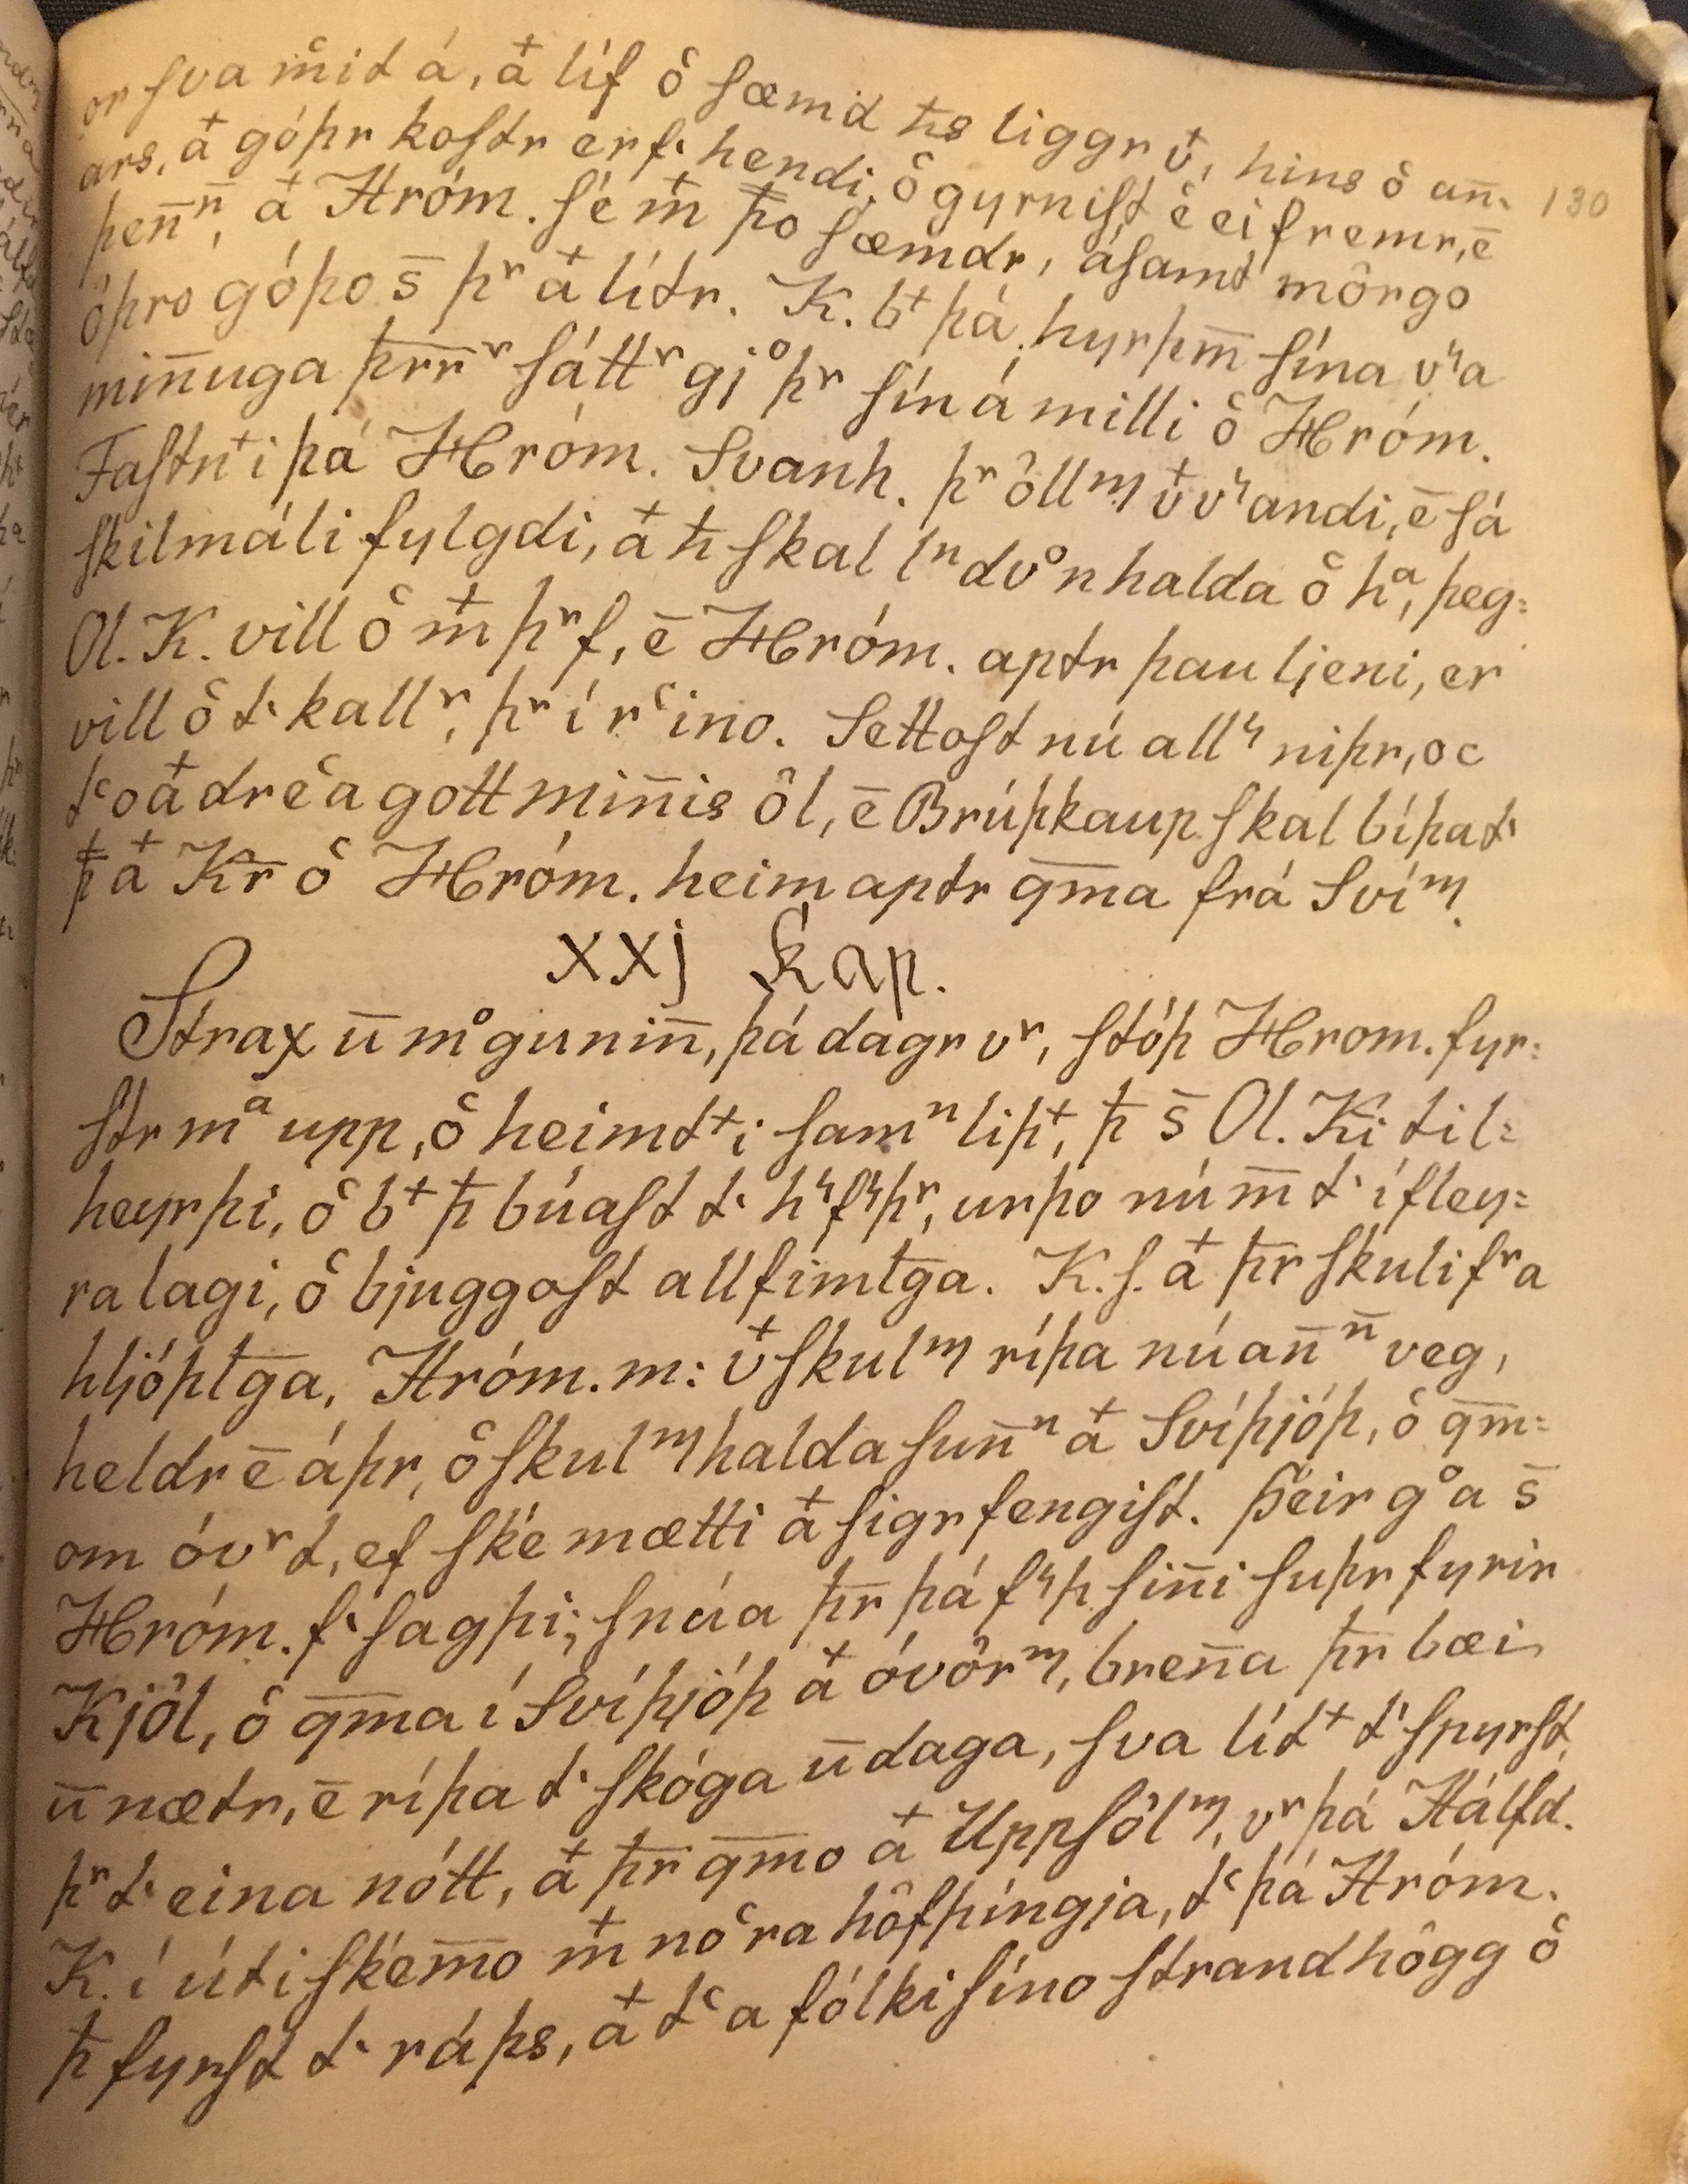 or sva mͦıt á, a͛ líf ô sæmd ħs liggr v͛, hins ô an̄-
ars, a͛ góþr kostr er f· hendi, ô gyrnist ē ei fremr, ē
þen̄ⁿ, a͛ Hróm. sé m͛ þo sæmdr, ásamt mörgo
öþro góþo s̄ þʳ a͛ lítr. K. b⁺ þá hyrþm̄ sína vʳa
min̄uga þr̄r̄ʳ sáttʳ gj°þʳ sín á milli ô Hróm.
Fastn⁺i þá Hróm. Svanh. þʳ öllᵐ v͛vʳandi, ē sá
skilmáli fylgdi, a͛ ħ skal lⁿdv°n halda ô hᵃ, þeg=
Ol. K. vill ô m͛ þʳf, ē Hróm. aptr þau ljeni, er
vill ô t· kallʳ, þʳ í rᶜino. Settost nú allʳ niþr, oc
tᶜo a͛ drēa gott min̄is öl, ē Brúþkaup skal bíþa t·
þ̄ a͛ Kr̄ ô Hróm. heim aptr qm̄a frá Svíᵐ.
xxj Kap.
Strax ū m°gunin̄, þá dagr vʳ, stóþ Hrom. fyr=
str mᵃ upp, ô heimt⁺i samⁿ liþ⁺, þ̄ s̄ Ol. Ki til=
heyrþi, ô b⁺ þ̄ búast t· hʳfʳþʳ, urþo nú m̄ t· í fley=
ra lagi, ô bjuggost allfimlḡa. K. s. a͛ þr̄ skuli fʳa
hljóþlḡa, Hróm. m: v͛ skulᵐ ríþa nú an̄ⁿ veg,
heldr ē áþr, ô skulᵐ halda sun̄ⁿ a͛ Svíþjóþ, ô qm̄=
om óvʳt, ef ské mætti a͛ sigr fengist. Þeir g°a s̄
Hróm. f· sagþi; snúa þr̄ þá fʳþ sin̄i suþr fyrir
Kjöl, ô qm̄a í Svíþjóþ a͛ óvörᵐ, bren̄a þr̄ bæi
ū nætr, ē ríþa t· skóga ū daga, sva lít⁺ t· spyrst,
þʳ t· eina nótt, a͛ þr̄ qm̄o a͛ Uppsölᵐ, vʳ þá Hálfd.
K. í úti skem̄o m͛ noᶜra höfþingja, tᶜ þá Hróm.
þ̄ fyrst t· ráþs, a͛ tᶜa fólki síno strandhögg ô
130